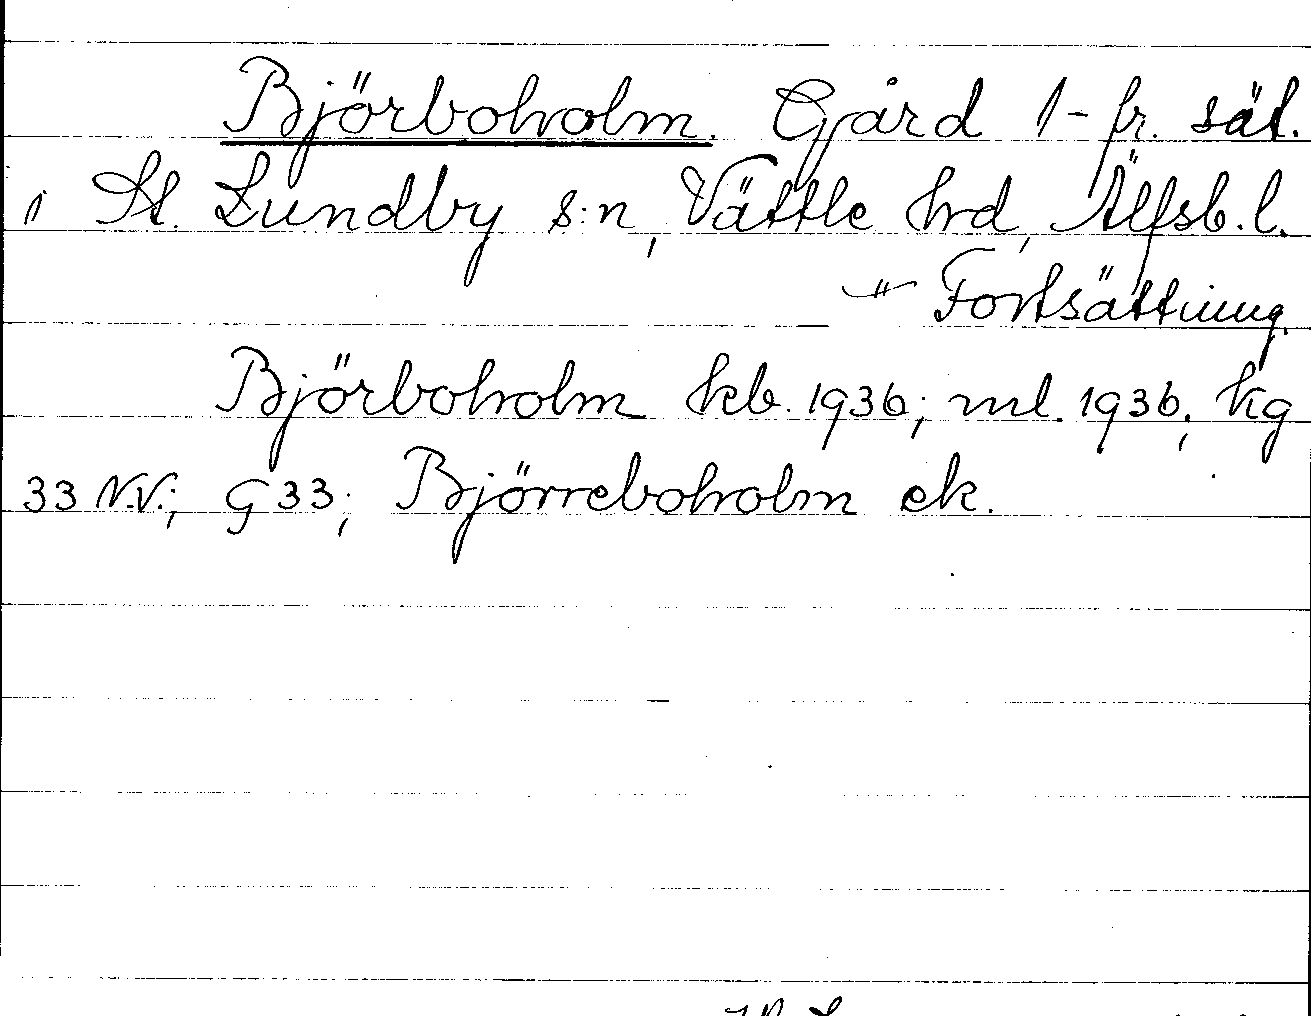 Björboholm. Gård 1 - fr. sät.
i St. Lundby s:n, Vättle hrd, Älfsb. l.
—"— Fortsättning.
Björboholm kb. 1936; ml. 1936; kg
33 N.V.; G 33; Björreboholm ek.